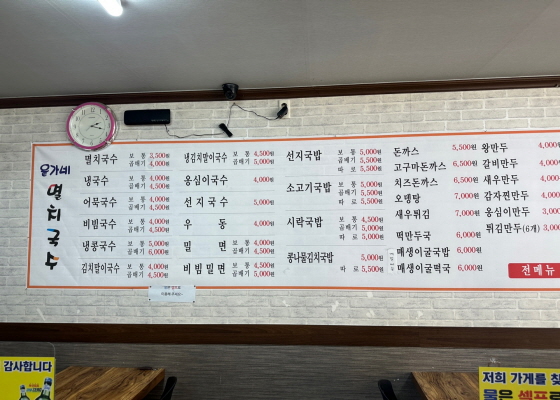 윤가네
멸치국수
멸치국수 보통 3,500원 곱빼기 4,000원
냉국수 보통 4,000원 곱빼기 4,500원
어묵국수 보통 4,000원 곱빼기 4,500원
비빔국수 보통 4,000원 곱빼기 4,500원
냉콩국수 보통 5,000원 곱빼기 6,000원
김치말이국수 보통 4,000원 곱빼기 4,500원
냉김치말이국수 보통 4,500원 곱빼기 5,000원
옹심이국수 4,000원
선지국수 5,000원
우동 4,000원
밀면 보통 4,000원 곱빼기 4,500원
비빔밀면 보통 4,500원 곱빼기 5,000원
선지국밥 보통 5,000원 곱빼기 5,500원 따로 5,500원
소고기국밥 보통 5,000원 곱빼기 5,500원 따로 5,500원
시락국밥 보통 4,500원 곱빼기 5,000원 따로 5,000원
콩나물김치국밥 5,000원 따로 5,500원
돈까스 5,500원
고구마돈까스 6,500원
치즈돈까스 6,500원
오뎅탕 7,000원
새우튀김 7,000원
떡만두국 6,000원
매생이굴국밥 6,000원
매생이굴떡국 6,000원
왕만두 4,000
갈비만두 4,000
새우만두 4,000
감자찐만두 4,000
옹심이만두 3,00
튀김만두(6개) 3,00
전메뉴
감사합니다
저희 가게를 찾
물은 셀프